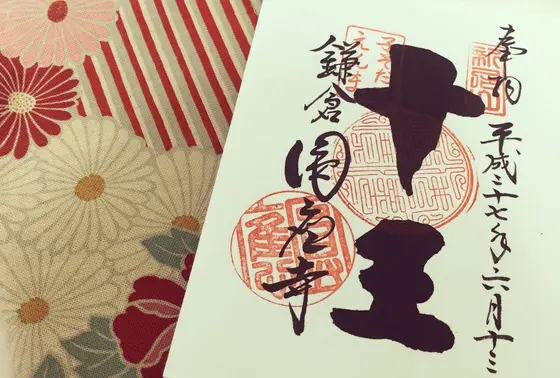 奉拝 平成二十七年六月十三
十王
子そだて
えんま
鎌倉 圓應寺